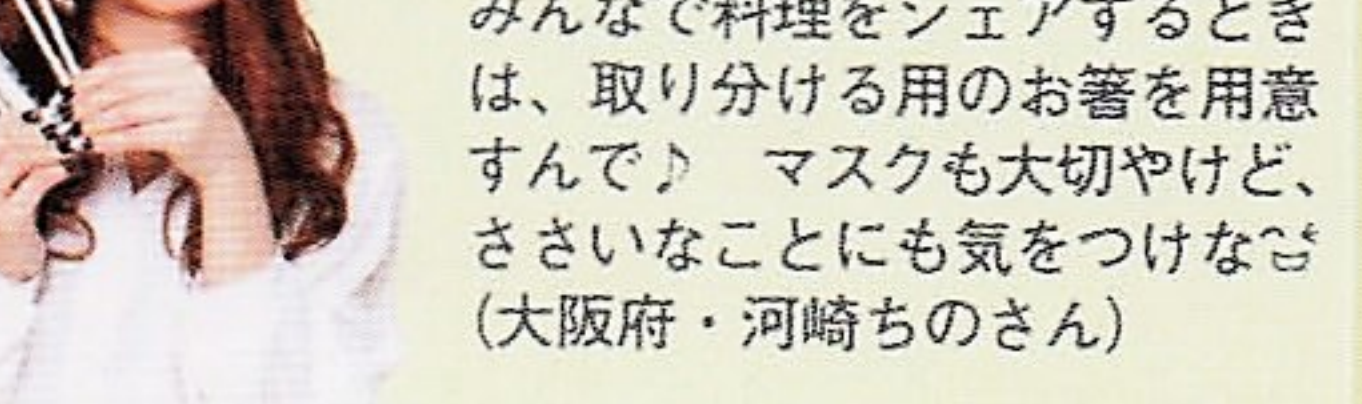 みんなで料理をシェアするとき
は、取り分ける用のお箸を用意
すんで♪　マスクも大切やけど、
ささいなことにも気をつけな
(大阪府・河崎ちのさん)